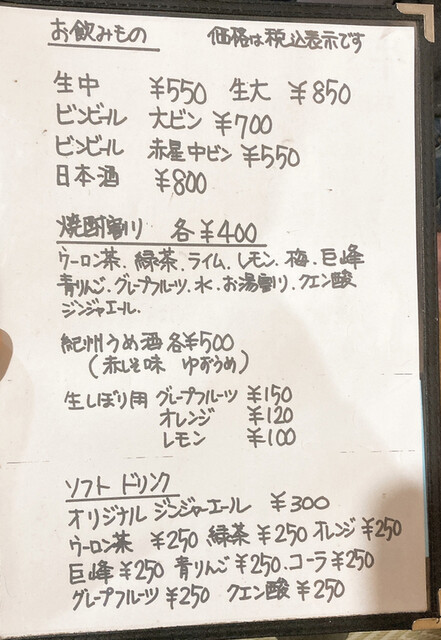 お飲みもの 価格は税込表示です
生中 ¥550 生大 ¥850
ビンビール 大ビン ¥700
ビンビール 赤星中ビン ¥550
日本酒 ¥800
焼酎割り 各¥400
ウーロン茶、緑茶、ライム、レモン、梅、巨峰
青りんご、グレープフルーツ、水、お湯割り、クエン酸
ジンジャエール、
紀州うめ酒 各¥500
(赤しそ味 ゆずうめ)
生しぼり用 グレープフルーツ ¥150
オレンジ ¥120
レモン ¥100
ソフト ドリンク
オリジナル ジンジャーエール ¥300
ウーロン茶 ¥250 緑茶 ¥250 オレンジ ¥250
巨峰 ¥250 青りんご ¥250、コーラ ¥250
グレープフルーツ ¥250 クエン酸 ¥250